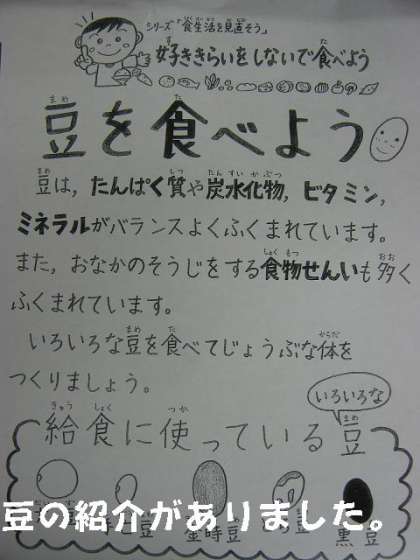 シリーズ「食生活を見直そう」
好ききらいをしないで食べよう
豆を食べよう
豆は，たんぱく質や炭水化物，ビタミン，
ミネラルがバランスよくふくまれています。
また，おなかのそうじをする食物せんいも多く
ふくまれています。
いろいろな豆を食べてじょうぶな体を
つくりましょう。
いろいろな
給食に使っている豆
金時豆
黒豆
豆の紹介がありました。